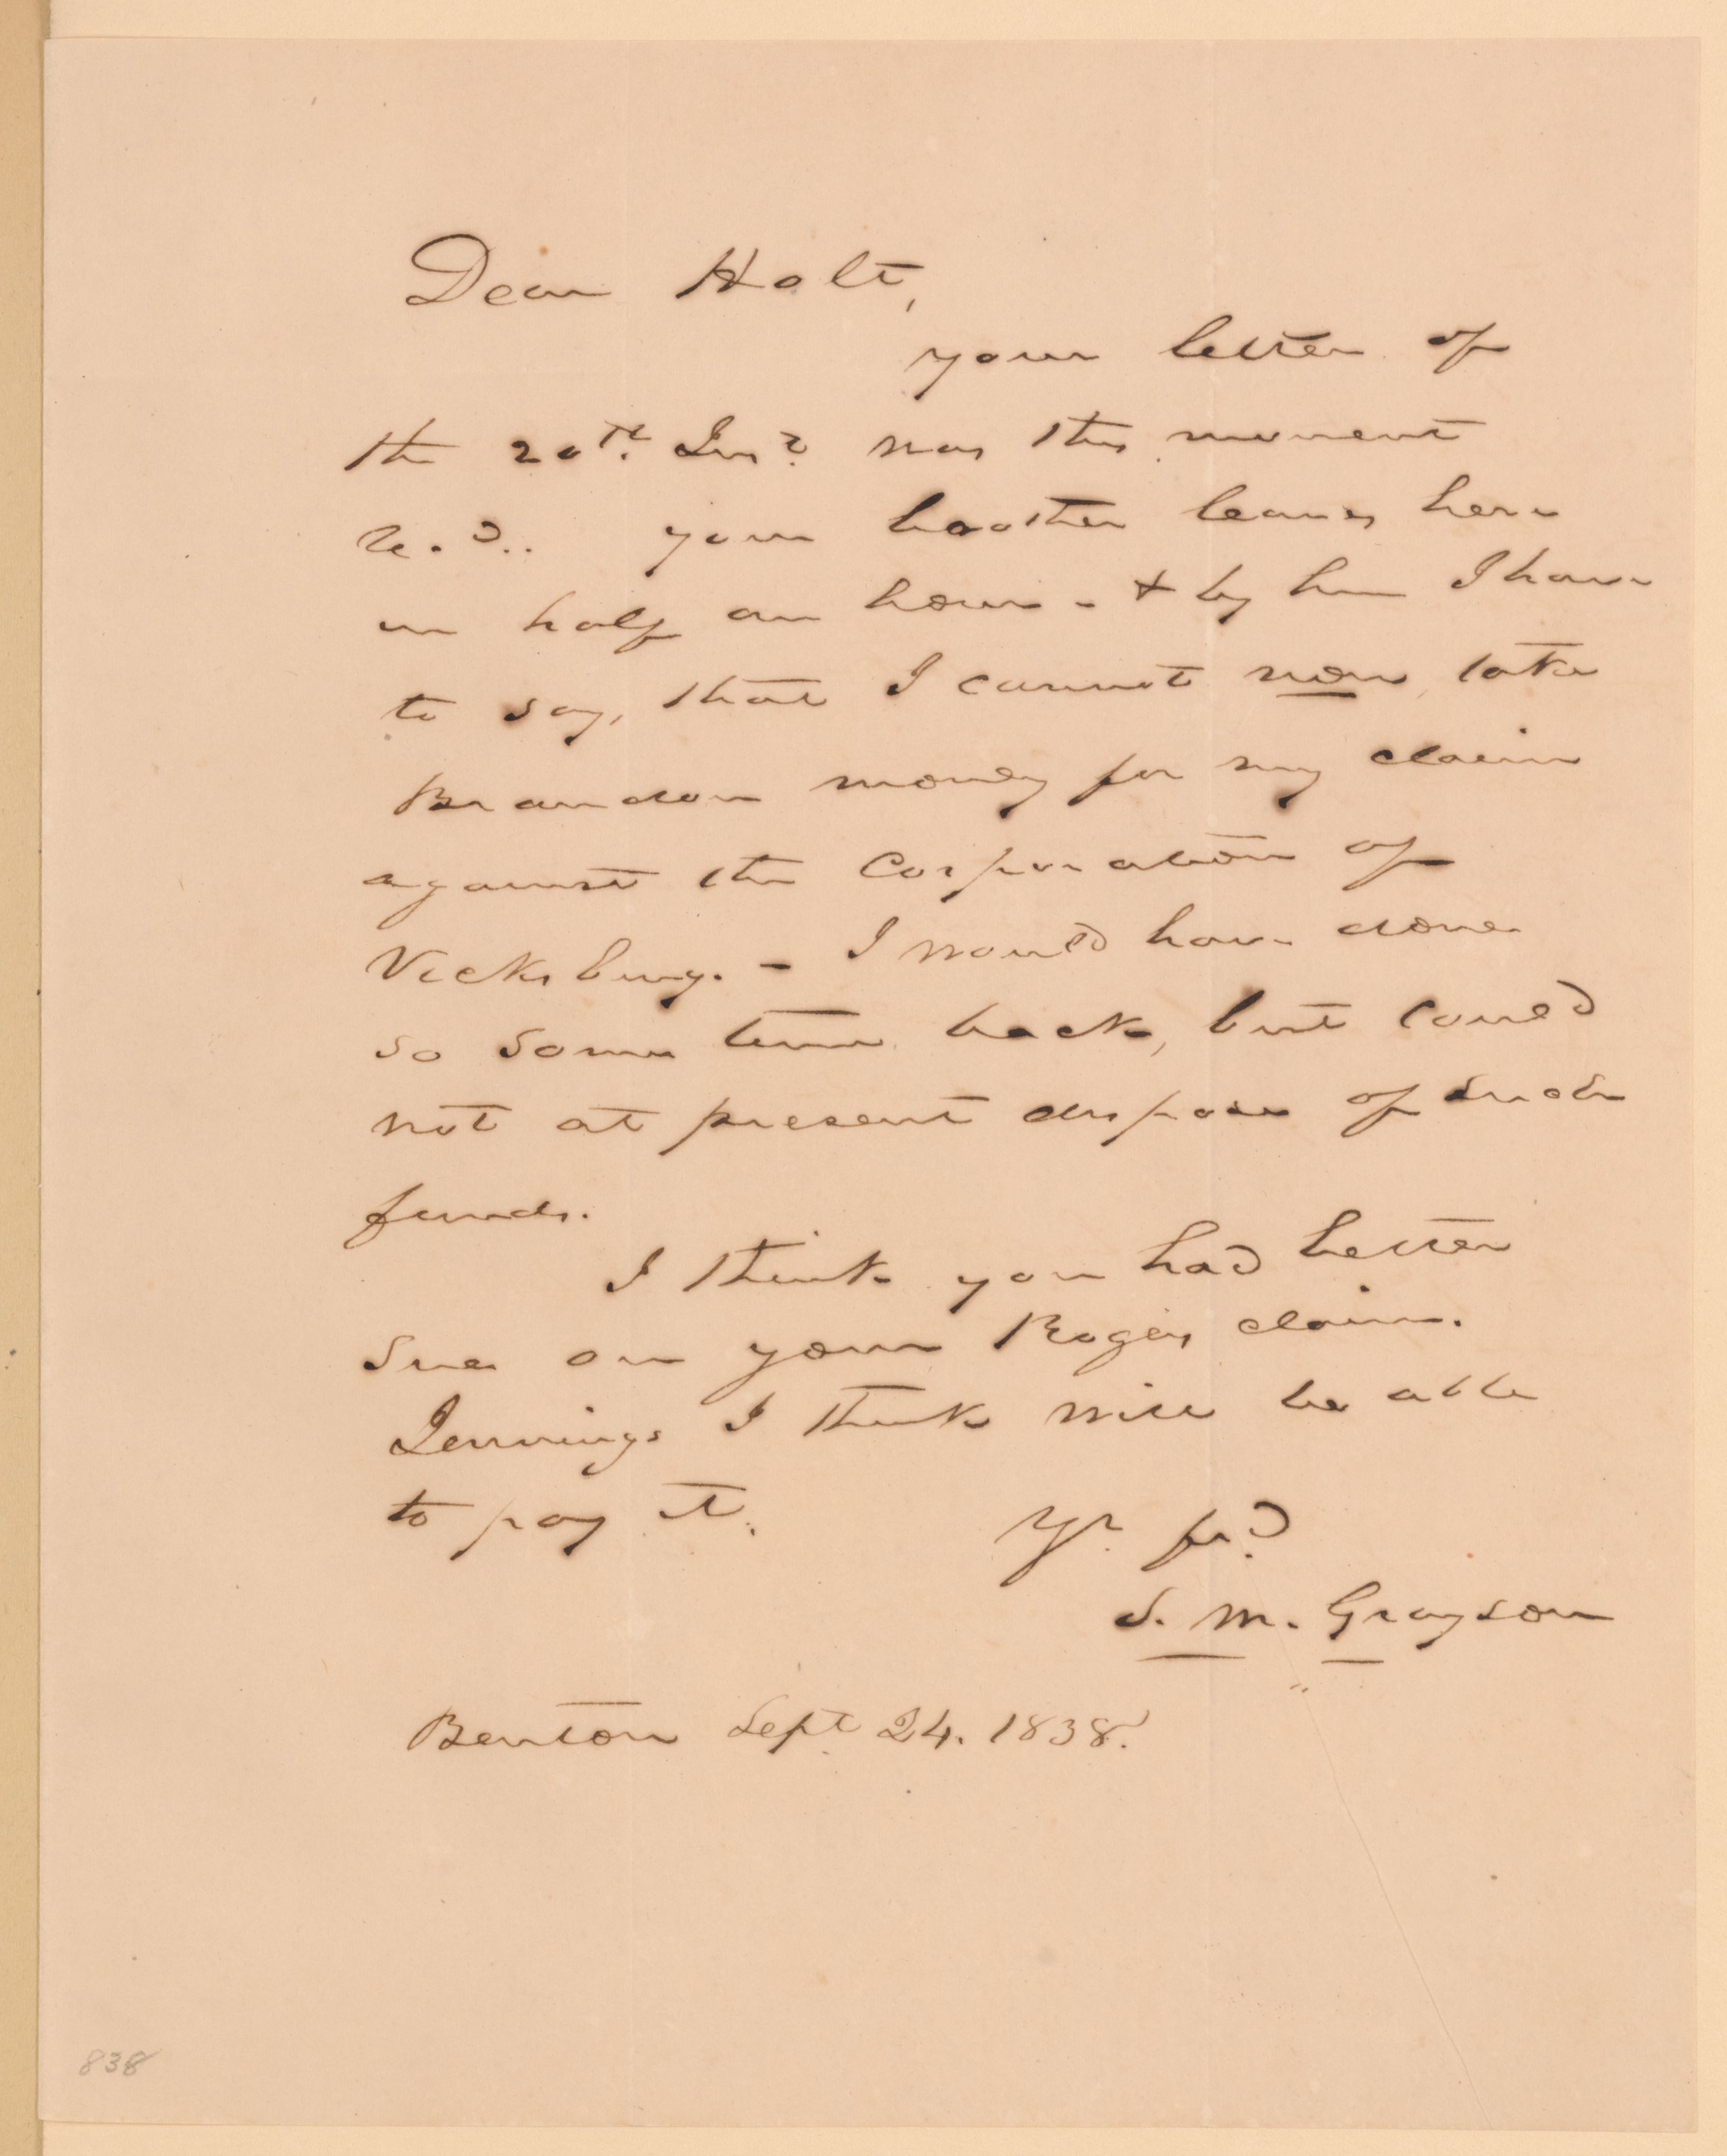 Dear Holt,
your letter of
the 20th. Inst. was this moment
Re.d.. your brother leaves here
in half an hour - & by him I have
to say, that I cannot now take
Brandon money for my claim
against the Corporation of
Vicksburg. - I would have done
so some time back, but could
not at present dispose of such
funds.
I think you had better
sue on your Rogers claim.
Jennings I think will be able
to pay it.
Yr. frd.
S. M. Grayson
Benton Sept 24. 1838.
838